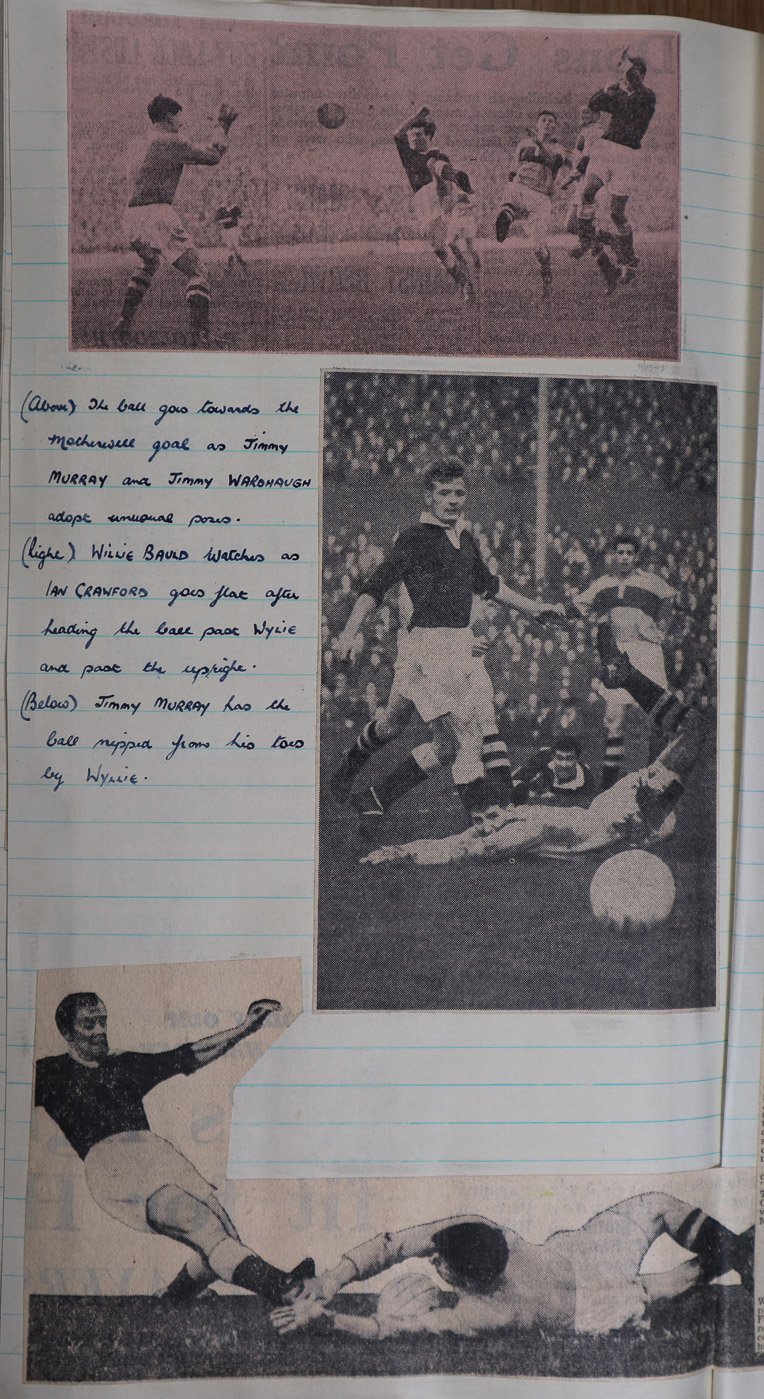 (Above) The ball goes towards the
Motherwell goal as Jimmy
MURRAY and Jimmy WARDHAUGH
adopt unusual poses.
(Right) WILLIE BAULD watches as
IAN CRAWFORD goes flat after
heading the ball past WYLIE
and past the upright.
(Below) Jimmy MURRAY has the
ball nipped from his toes
by WYLLIE.